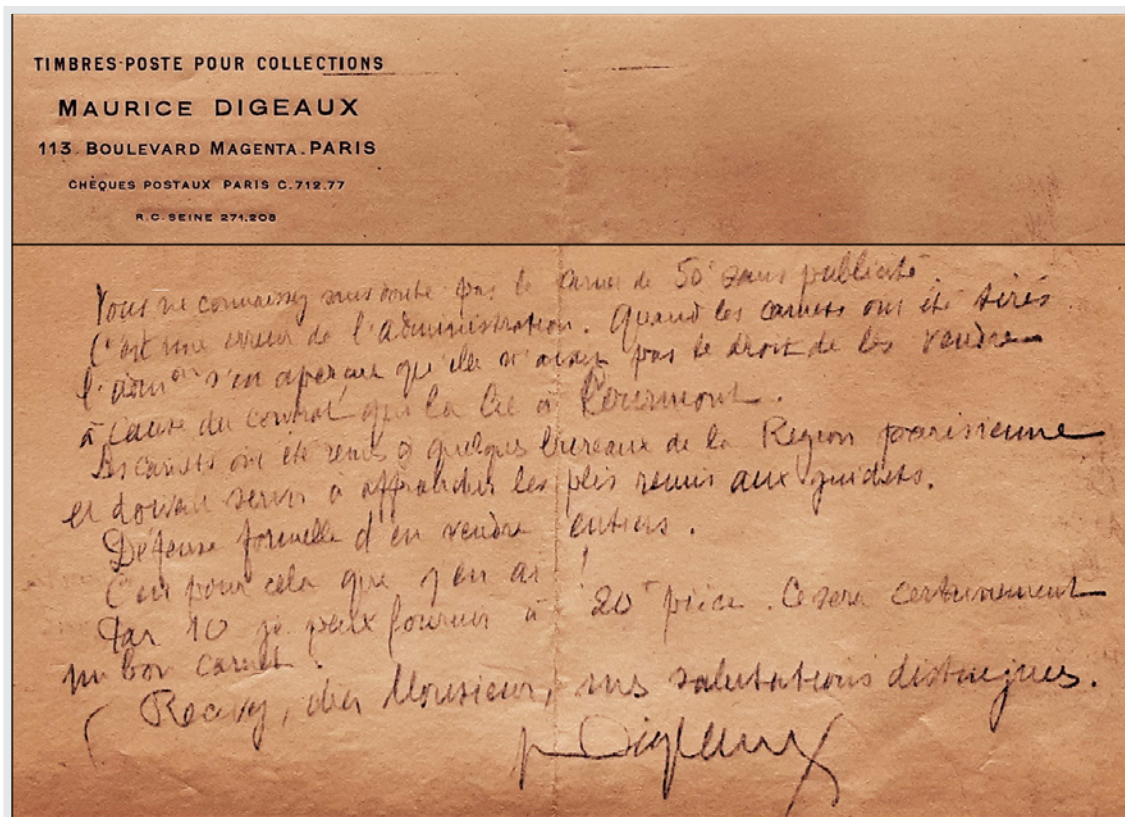 TIMBRES-POSTE POUR COLLECTIONS
MAURICE DIGEAUX
113. BOULEVARD MAGENTA. PARIS
CHÈQUES POSTAUX PARIS C.712.77
R.C. SEINE 271.208
Vous ne connaissez sans doute pas le carnet de 50c sans publicité.
C'est une erreur de l'administration. Quand les carnets ont été tirés
l'admon s'en aperçut qu'elle n'avait pas le droit de les vendre
à cause du contrat qui la lie à Courmont.
Les carnets ont été remis à quelques bureaux de la Région parisienne
et doivent servir à affranchir les plis remis aux guichets.
Défense formelle d'en vendre entiers.
C'est pour cela que j'en ai !
Par 10 je peux fournir à 20f pièce. Ce sera certainement
un bon carnet.
Recevez, cher Monsieur, mes salutations distinguées.
Digeaux